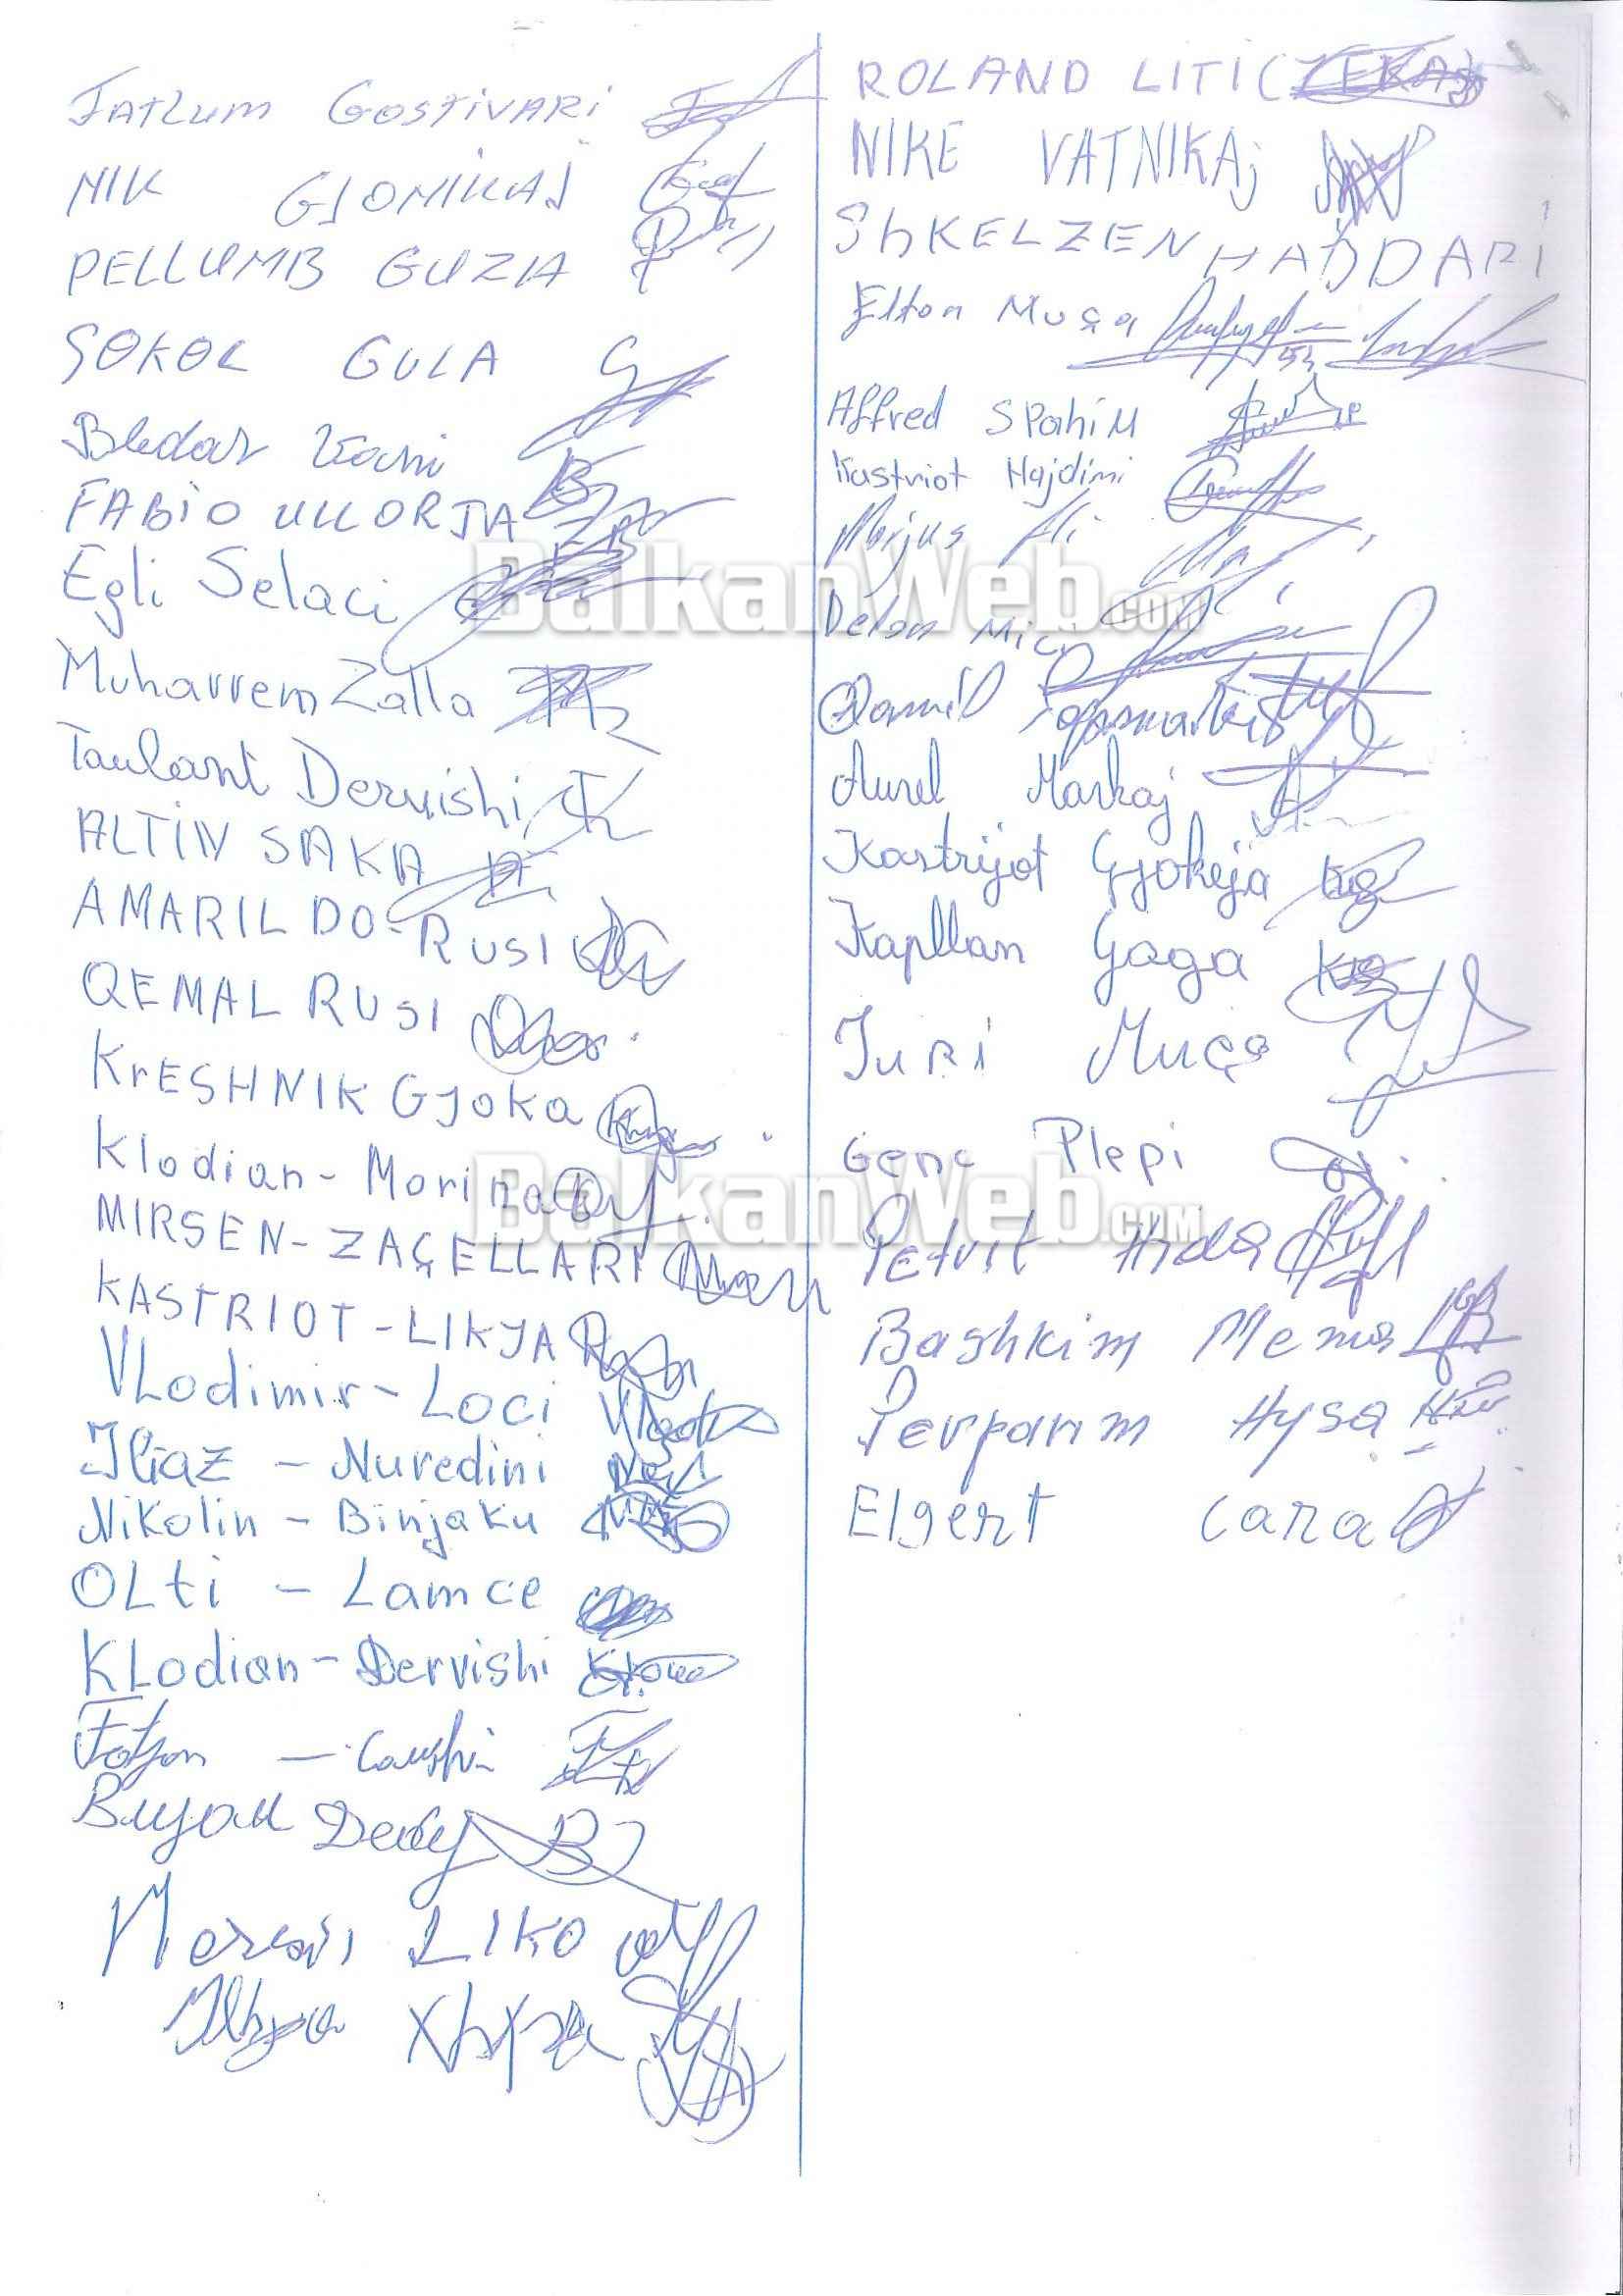 FATLUM GOSTIVARI
NIK GJONIKAJ
PELLUMB GUZIA
SOKOL GULA
Bledar
FABIO UKORJA
Egli Selaci
Muharrem Zalla
Taulant Dervishi
ALTIN SAKA
AMARILDO-RUSI
QEMAL RUSI
KrESHNIK GJOKa
Klodian - Morina
MIRSEN - ZAÇELLARI
KASTRIOT - LIKJA
VLodimir - Loci
Iliaz - Nuredini
Nikolin - Binjaku
OLti - Lamce
KLodian - Dervishi
LIKO
ROLAND LITI (ZEKAJ)
NIKE VATNIKAj
ShKELZEN HAJDARI
Elton Muça
Alfred SPahiu
Kastriot Hajdini
Marjus Ali
Delon
Aurel Markaj
Kastrijot Gjokeja
Kapllan Gaga
JuRi Muça
Genc Plepi
Petrit Hida
Bashkim Mema
Perparim Hysa
Elgert Cara
BalkanWeb.COM
BalkanWeb.COM